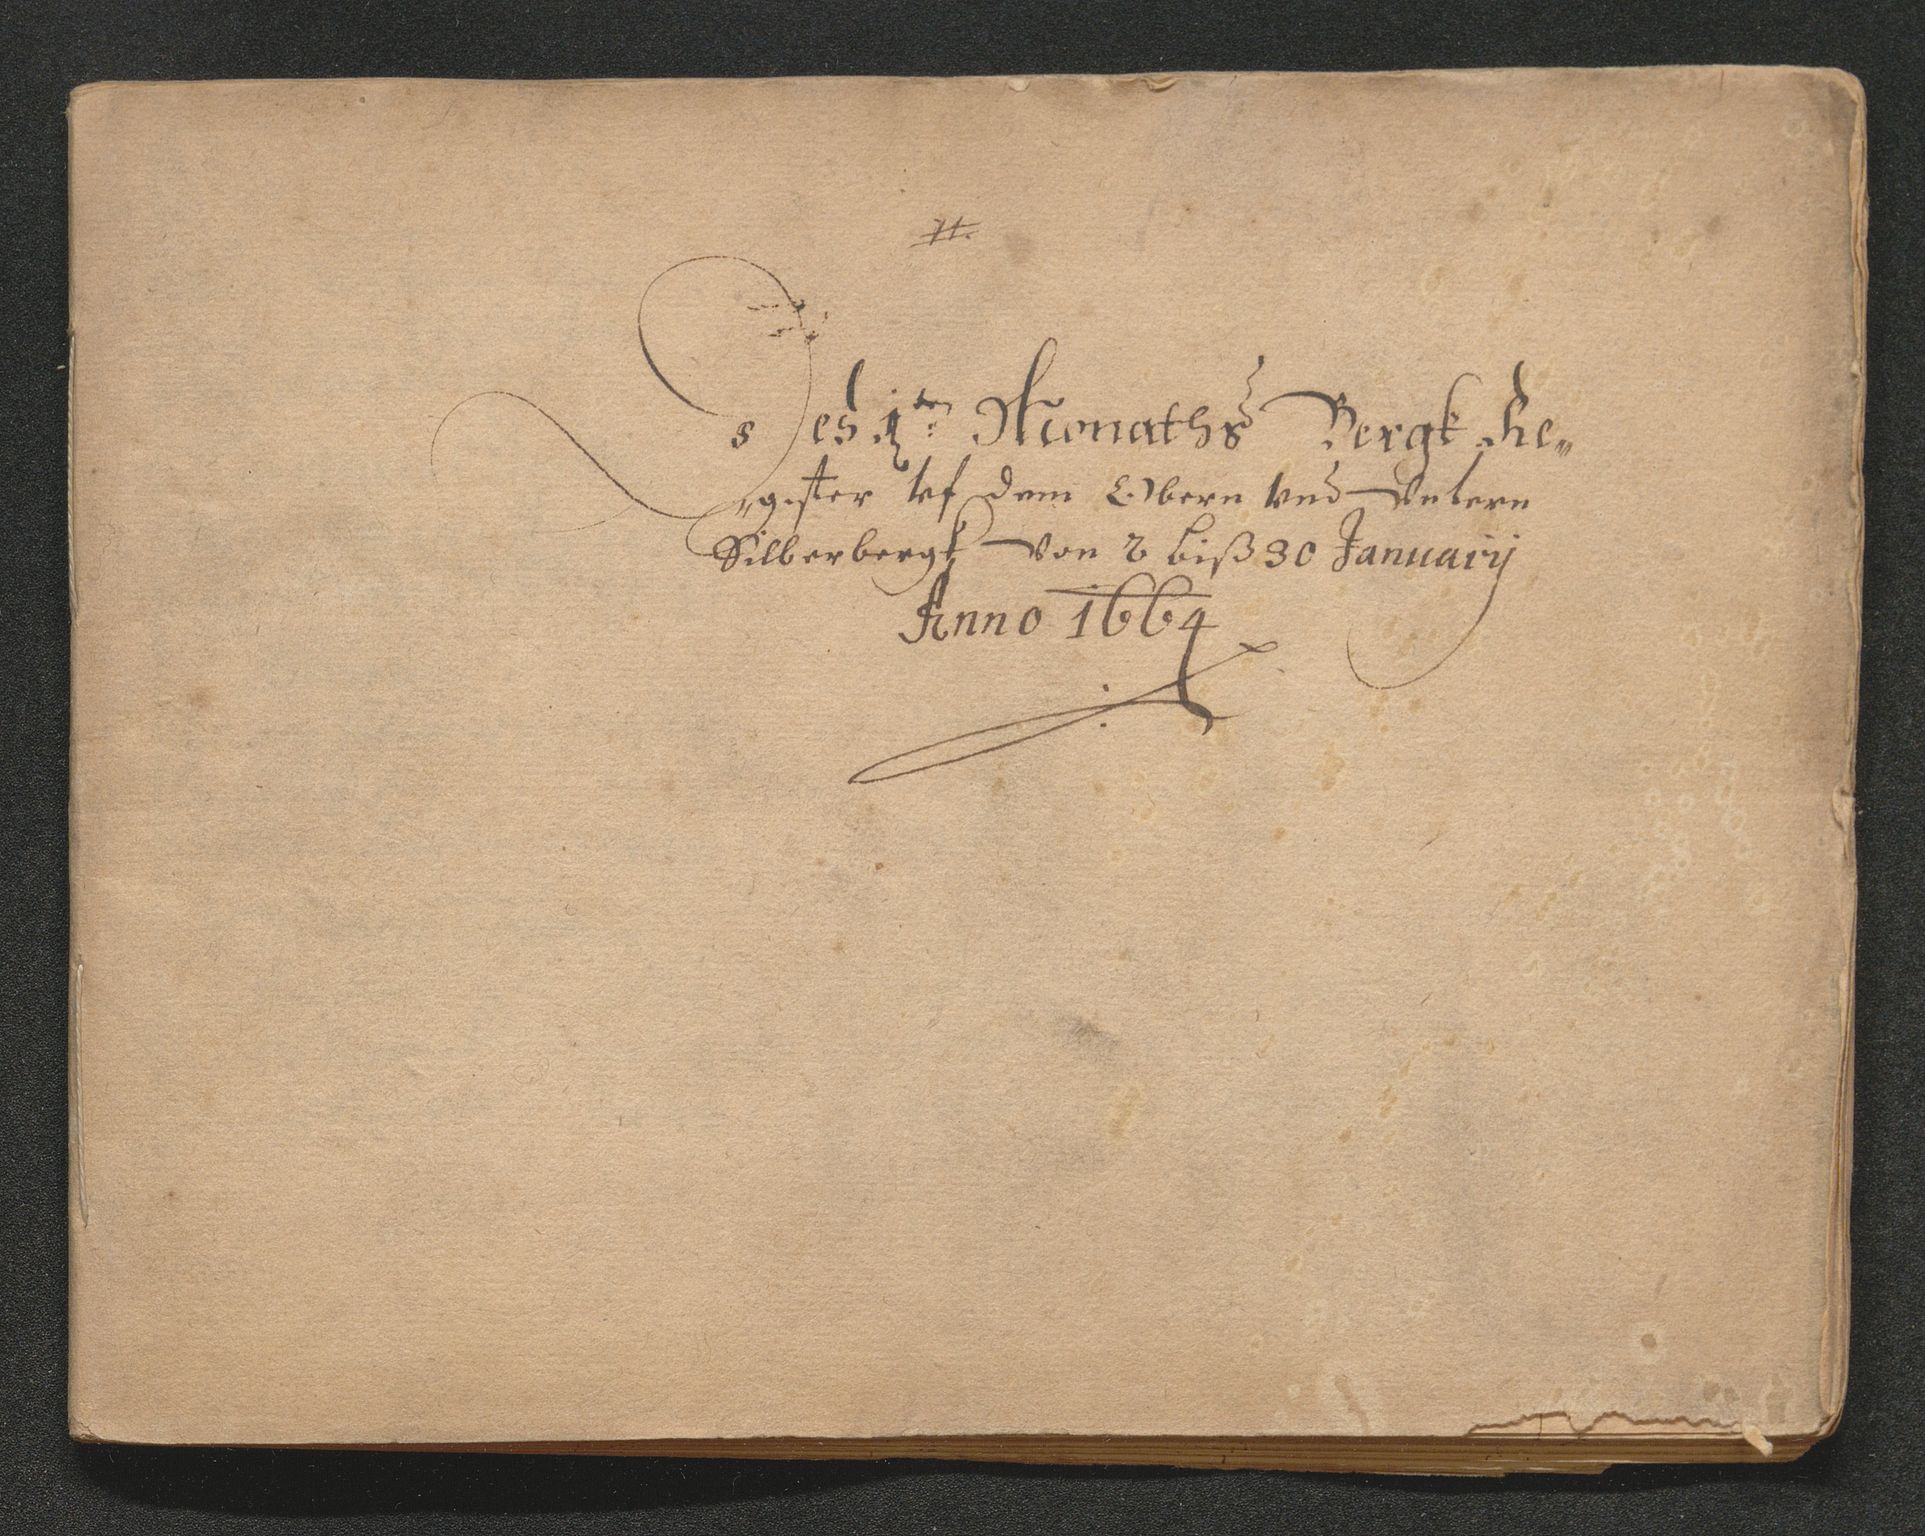 #.
Des 1ten Monaths Bergk Re-
gister uf dem Obern und Untern
Silberbergk von 2 biß 30 Januarij
Anno 1664